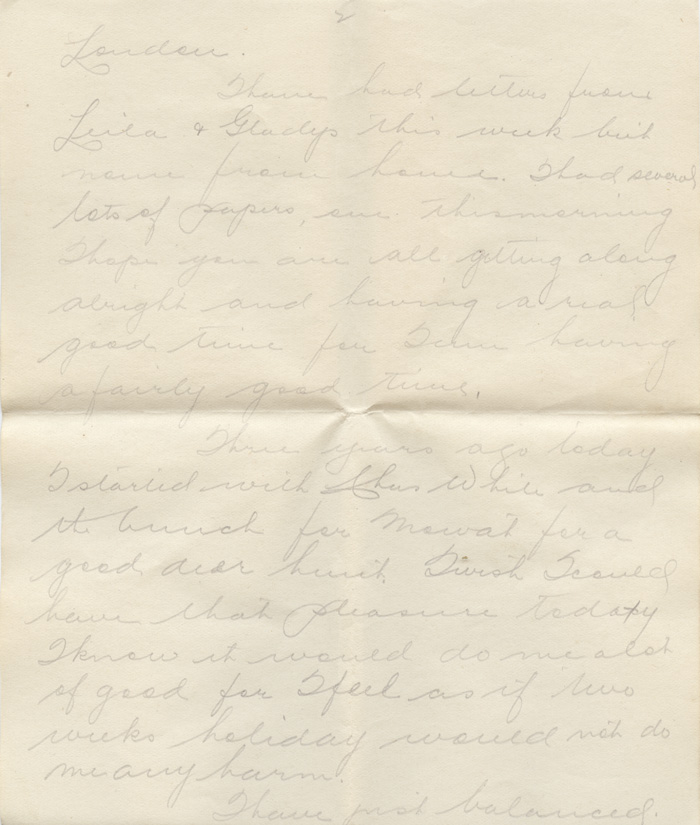 2
London.
I have had letters from
Leila & Gladys this week but
none from home. I had several
lots of papers, one this morning
I hope you are all getting along
alright and having a real
good time for I am having
a fairly good time.
Three years ago today
I started with Chas White and
the bunch for Mowat for a
good deer hunt. I wish I could
have that pleasure today
I know it would do me a lot
of good for I feel as if two
weeks holiday would not do
me any harm.
I have just balanced.